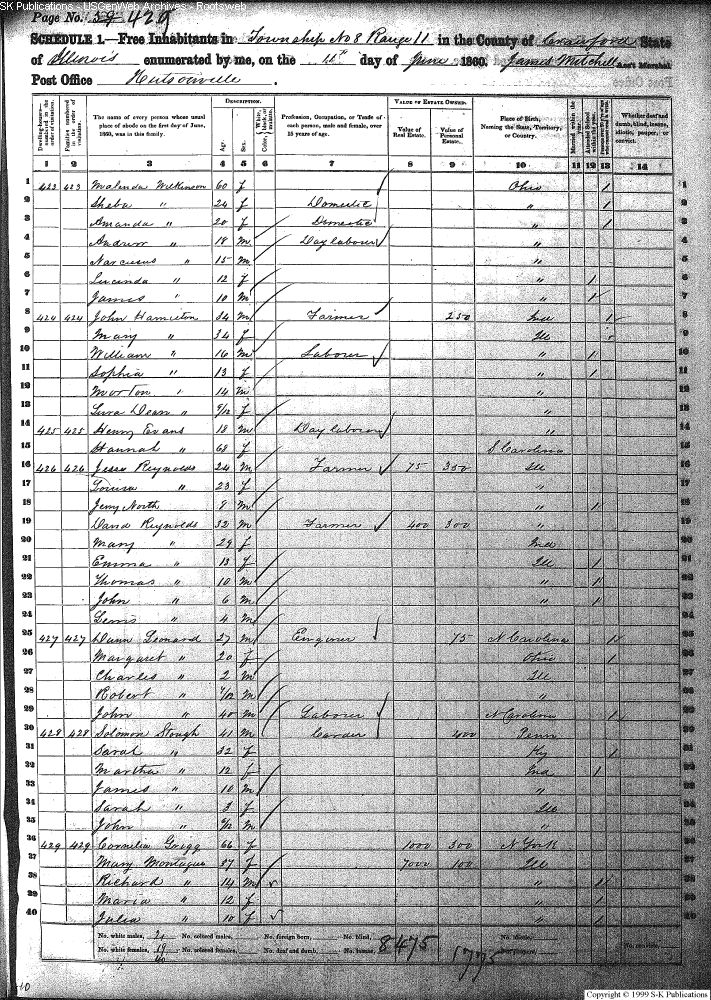 SK Publications - USGenWeb Archives - Rootsweb
Page No. 59 429
SCHEDULE 1.—Free Inhabitants in Township No 8 Range 11 in the County of Crawford State
of Illinois enumerated by me, on the 11th day of June 1860. James Mitchell Ass't Marshal
Post Office Hutsonville
Dwelling-houses— numbered in the order of visitation.
Families numbered in the order of visitation.
The name of every person whose usual place of abode on the first day of June, 1860, was in this family.
DESCRIPTION.
Age.
Sex.
Color, White, black, or mulatto.
Profession, Occupation, or Trade of each person, male and female, over 15 years of age.
VALUE OF ESTATE OWNED.
Value of Real Estate.
Value of Personal Estate.
Place of Birth, Naming the State, Territory, or Country.
Married within the year.
Attended School within the year.
Whether deaf and dumb, blind, insane, idiotic, pauper, or convict.
1 2 3 4 5 6 7 8 9 10 11 12 13 14
1 423 423 Malinda Wilkinson 60 f Ohio / 1
2 Sheba " 24 f Domestic " / 2
3 Amanda " 20 f Domestic " / 3
4 Andrew " 18 m Day labour " 4
5 Narcissus " 15 m " 5
6 Lucinda " 12 f " 1 6
7 James " 10 m " 1 7
8 424 424 John Hamilton 34 m Farmer 250 Ind 1 8
9 Mary " 34 f Ill 9
10 William " 16 m Labourer " 1 10
11 Sophia " 13 f " 1 11
12 Morton " 14 m " 12
13 Dean " 9/12 f " 13
14 425 425 Henry Evans 18 m Day labourer " 14
15 Hannah " 68 f S Carolina 15
16 426 426 Jesse Reynolds 24 m Farmer 75 350 Ill 16
17 Louisa " 23 f " 17
18 Jery North 8 m " 1 18
19 David Reynolds 32 m Farmer 400 300 " 19
20 Mary " 29 f Ind 20
21 Emma " 13 f Ill 1 21
22 Thomas " 10 m " 1 22
23 John " 6 m " 1 23
24 Lewis " 4 m 24
25 427 427 Dunn Leonard 27 m 75 N Carolina 25
26 Margaret " 20 f Ohio 1 26
27 Charles " 2 m Ill 27
28 Robert " m " 28
29 John " 40 m Labourer N Carolina 1 29
30 428 428 Solomon Stough 41 m Carder 400 Penn 30
31 Sarah " 32 f Ky 1 31
32 Martha " 12 f Ind 1 32
33 James " 10 m " 33
34 Sarah " 3 f Ill 34
35 John " m " 35
36 429 429 Cornelia Gregg 66 f 1000 300 N York 36
37 Mary Montague 37 f 7000 100 Ill 37
38 Richard " 14 m " 38
39 Maria " 12 f " 1 39
40 Julia " 10 f " 1 40
No. white males, 21 No. colored males, No. foreign born, No. blind, 8475 No. idiotic,
No. white females, 19 No. colored females, No. deaf and dumb, No. insane, 1775 No. paupers, No. convicts,
40
Copyright © 1999 S-K Publications